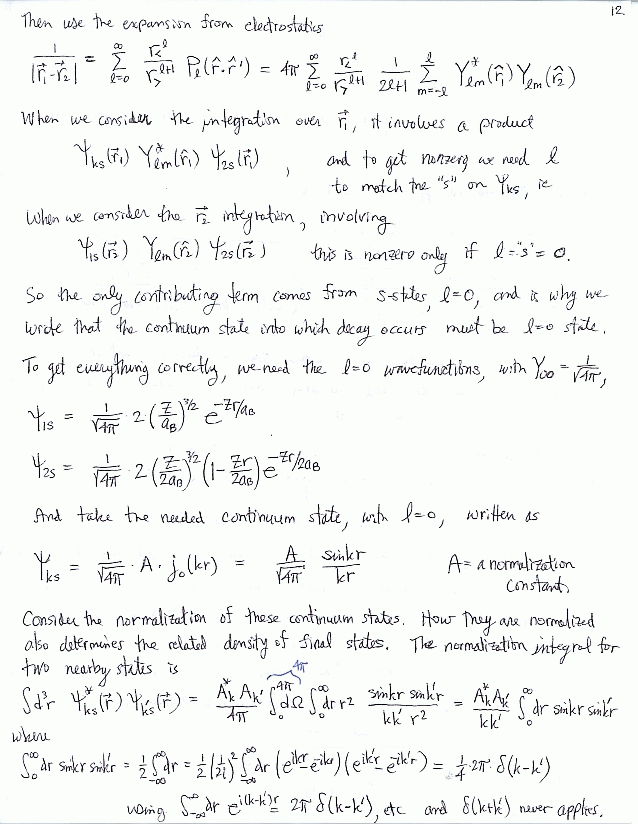 12
Then use the expansion from electrostatics
1/|r⃗₁-r⃗₂| = ∑_{l=0}^{∞} r_<^l / r_>^{l+1} P_l(r̂·r̂') = 4π ∑_{l=0}^{∞} r_<^l / r_>^{l+1} 1/(2l+1) ∑_{m=-l}^{l} Y*_{lm}(r̂₁) Y_{lm}(r̂₂)
When we consider the integration over r⃗₁, it involves a product
Ψ_ks(r⃗₁) Y*_{lm}(r̂₁) Ψ_2s(r⃗₁) , and to get nonzero we need l
to match the "s" on Ψ_ks, ie
When we consider the r⃗₂ integration, involving
Ψ_1s(r⃗₂) Y_{lm}(r̂₂) Ψ_2s(r⃗₂) this is nonzero only if l="s"=0.
So the only contributing term comes from s-states, l=0, and is why we
wrote that the continuum state into which decay occurs must be l=0 state.
To get everything correctly, we need the l=0 wavefunctions, with Y₀₀ = 1/√4π,
Ψ_1s = 1/√4π · 2 (Z/a_B)^{3/2} e^{-Zr/a_B}
Ψ_2s = 1/√4π · 2 (Z/2a_B)^{3/2} (1 - Zr/2a_B) e^{-Zr/2a_B}
And take the needed continuum state, with l=0, written as
Ψ_ks = 1/√4π · A · j₀(kr) = A/√4π sinkr/kr A = a normalization
constant.
Consider the normalization of these continuum states. How they are normalized
also determines the related density of final states. The normalization integral for
two nearby states is
4π
∫d³r Ψ*_ks(r⃗) Ψ_k's(r⃗) = A*_k A_k'/4π ∫_0^{4π} dΩ ∫_0^∞ dr r² sinkr sink'r / kk' r² = A*_k A_k'/kk' ∫_0^∞ dr sinkr sink'r
where
∫_0^∞ dr sinkr sink'r = 1/2 ∫_{-∞}^∞ dr = 1/2 (1/2i)² ∫_{-∞}^∞ dr (e^{ikr} - e^{-ikr})(e^{ik'r} - e^{-ik'r}) = 1/4 · 2π δ(k-k')
using ∫_{-∞}^∞ dr e^{i(k-k')r} = 2π δ(k-k'), etc and δ(k+k') never applies.